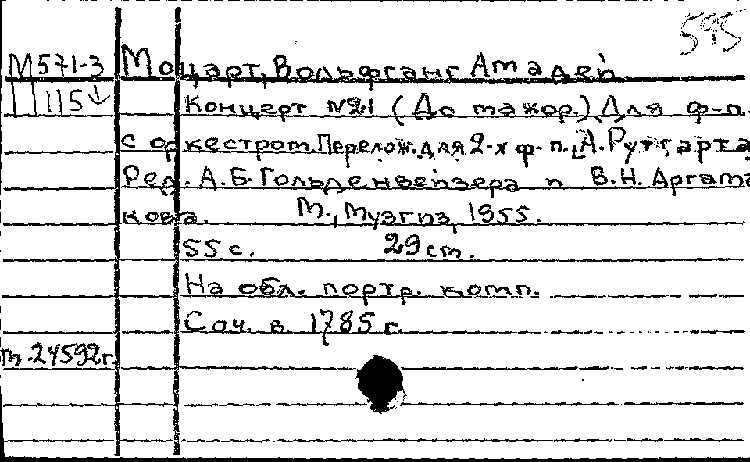 595
М571-3 Моцарт, Вольфганг Амадей
115 Концерт №21 (До мажор.) Для ф-п.
с оркестром. Перелож. для 2-х ф-п. А. Рутгарта
Ред. А.Б. Гольденвейзера и В.Н. Аргама
кова. М., Музгиз, 1955.
55 с. 29 см.
На обл. портр. комп.
Соч. в 1785 г.
24592г.